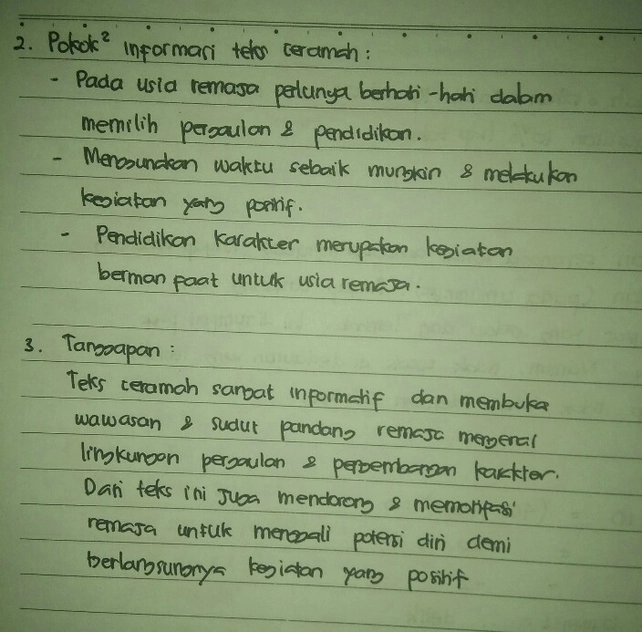 2. Pokok² informasi teks ceramah :
- Pada usia remaja perlunya berhati-hati dalam
memilih pergaulan & pendidikan.
- Menggunakan waktu sebaik mungkin & melakukan
kegiatan yang positif.
- Pendidikan karakter merupakan kegiatan
bermanfaat untuk usia remaja.
3. Tanggapan :
Teks ceramah sangat informatif dan membuka
wawasan & sudut pandang remaja mengenai
lingkungan pergaulan & pengembangan karakter.
Dari teks ini juga mendorong & memotifasi
remaja untuk menggali potensi diri demi
berlangsungnya kegiatan yang positif